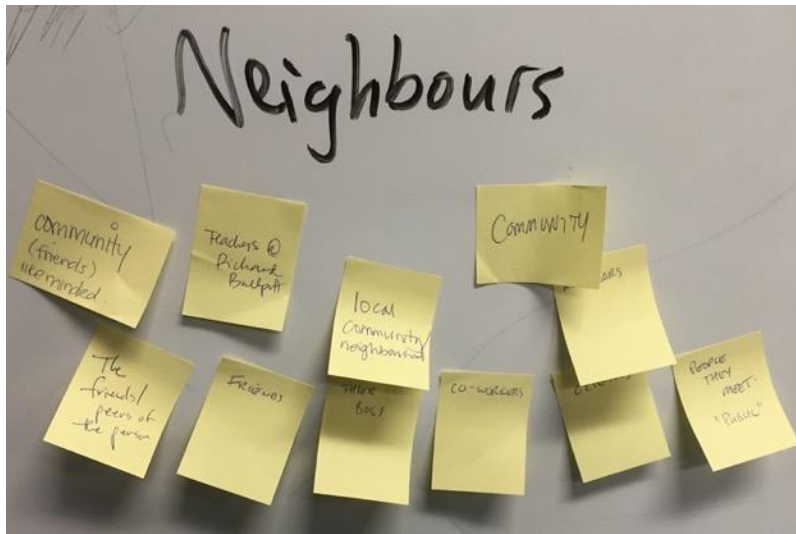 Neighbours
community
(friends)
likeminded.
Teachers @
Richmond
Ballpit
COMMUNITY
local
community/
The
friends/
peers of
the person
FRIENDS
THEIR
BOSS
CO-WORKERS
PEOPLE
THEY
MEET.
"PUBLIC"